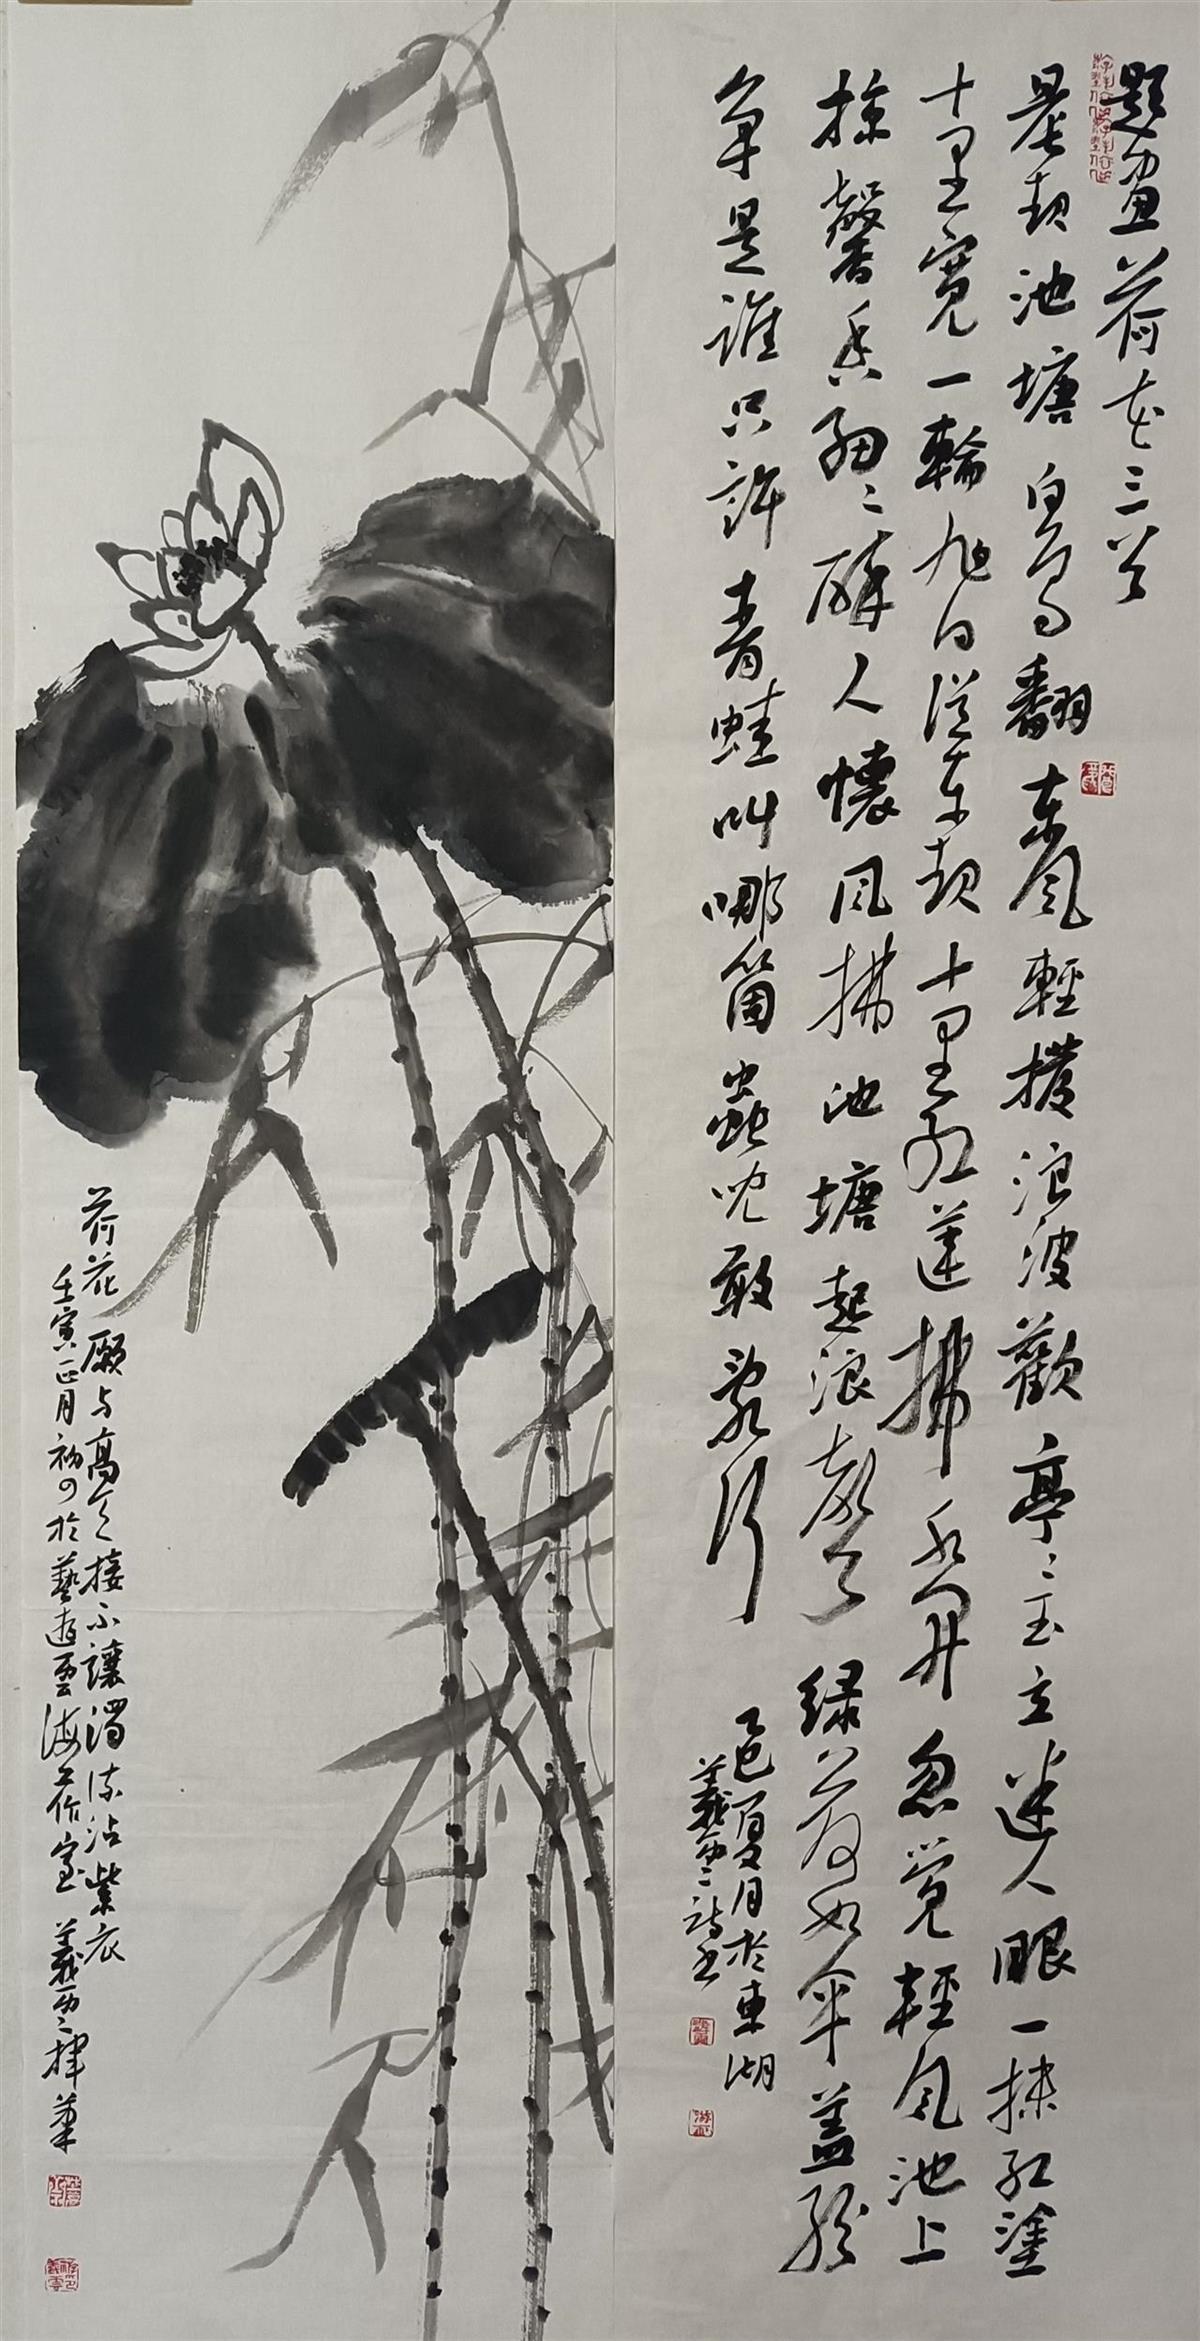 題畫荷花三首
晨起池塘白鳥翻東風輕撥浪波歡亭〻玉立迷人眼一抹紅塗
十里寬一輪旭日從東起十里紅蓮拂水開忽覺輕風池上
掠馨香細〻醉人懷風拂池塘起浪聲绿荷如傘蓋紛
争是誰只許青蛙叫哪箇蟲兒敢亂行
乙巳夏月於東湖
義雲詩書
荷花願与高人接不讓濁流沾紫衣
壬寅正月初四於藝遊雲海工作室義雲揮筆